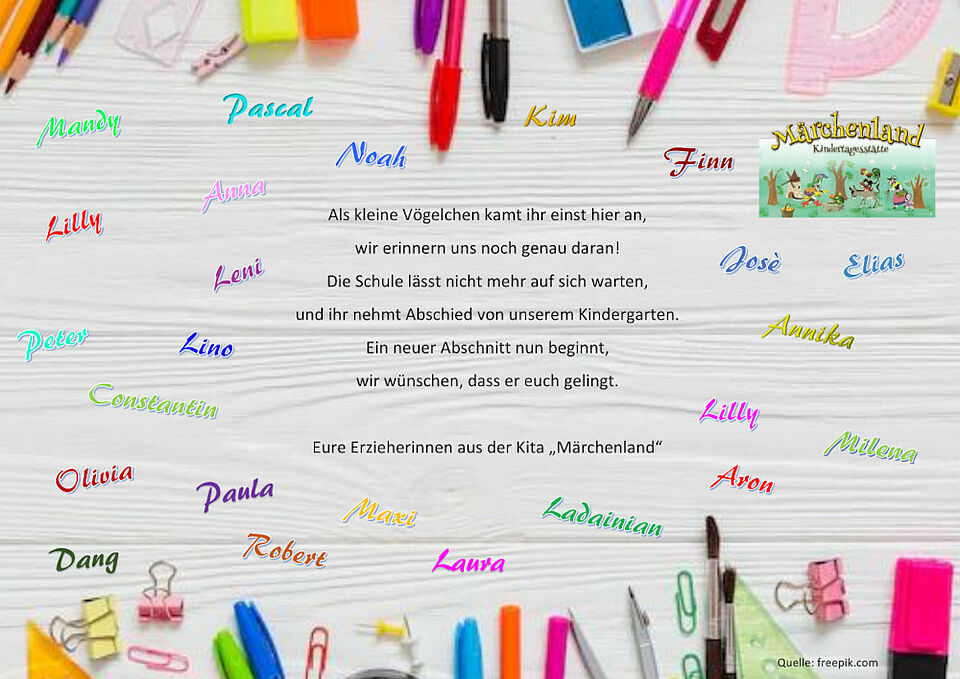 Pascal
Kim
Mandy
Märchenland
Kindertagesstätte
Noah
Finn
Anna
Lilly
Als kleine Vögelchen kamt ihr einst hier an,
wir erinnern uns noch genau daran!
Leni
Josè
Elias
Die Schule lässt nicht mehr auf sich warten,
und ihr nehmt Abschied von unserem Kindergarten.
Peter
Lino
Annika
Ein neuer Abschnitt nun beginnt,
wir wünschen, dass er euch gelingt.
Constantin
Lilly
Milena
Eure Erzieherinnen aus der Kita „Märchenland“
Olivia
Paula
Aron
Maxi
Ladainian
Dang
Robert
Laura
Quelle: freepik.com